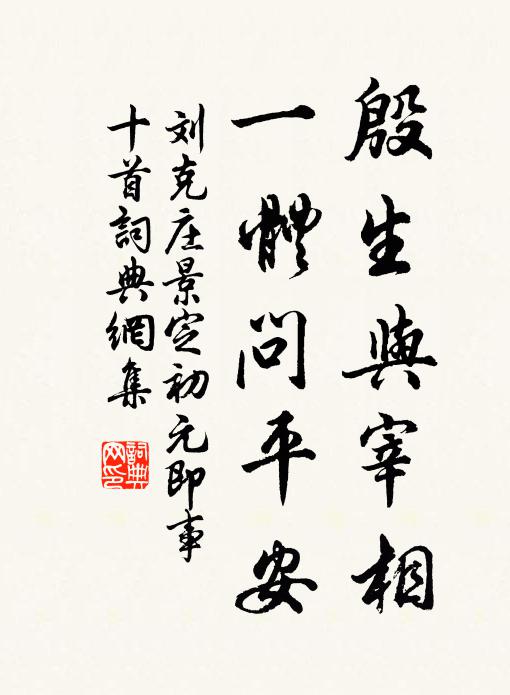 殷生與宰相
一體問平安
刘克庄景定初元即事
十首詞典網集
詞典网印